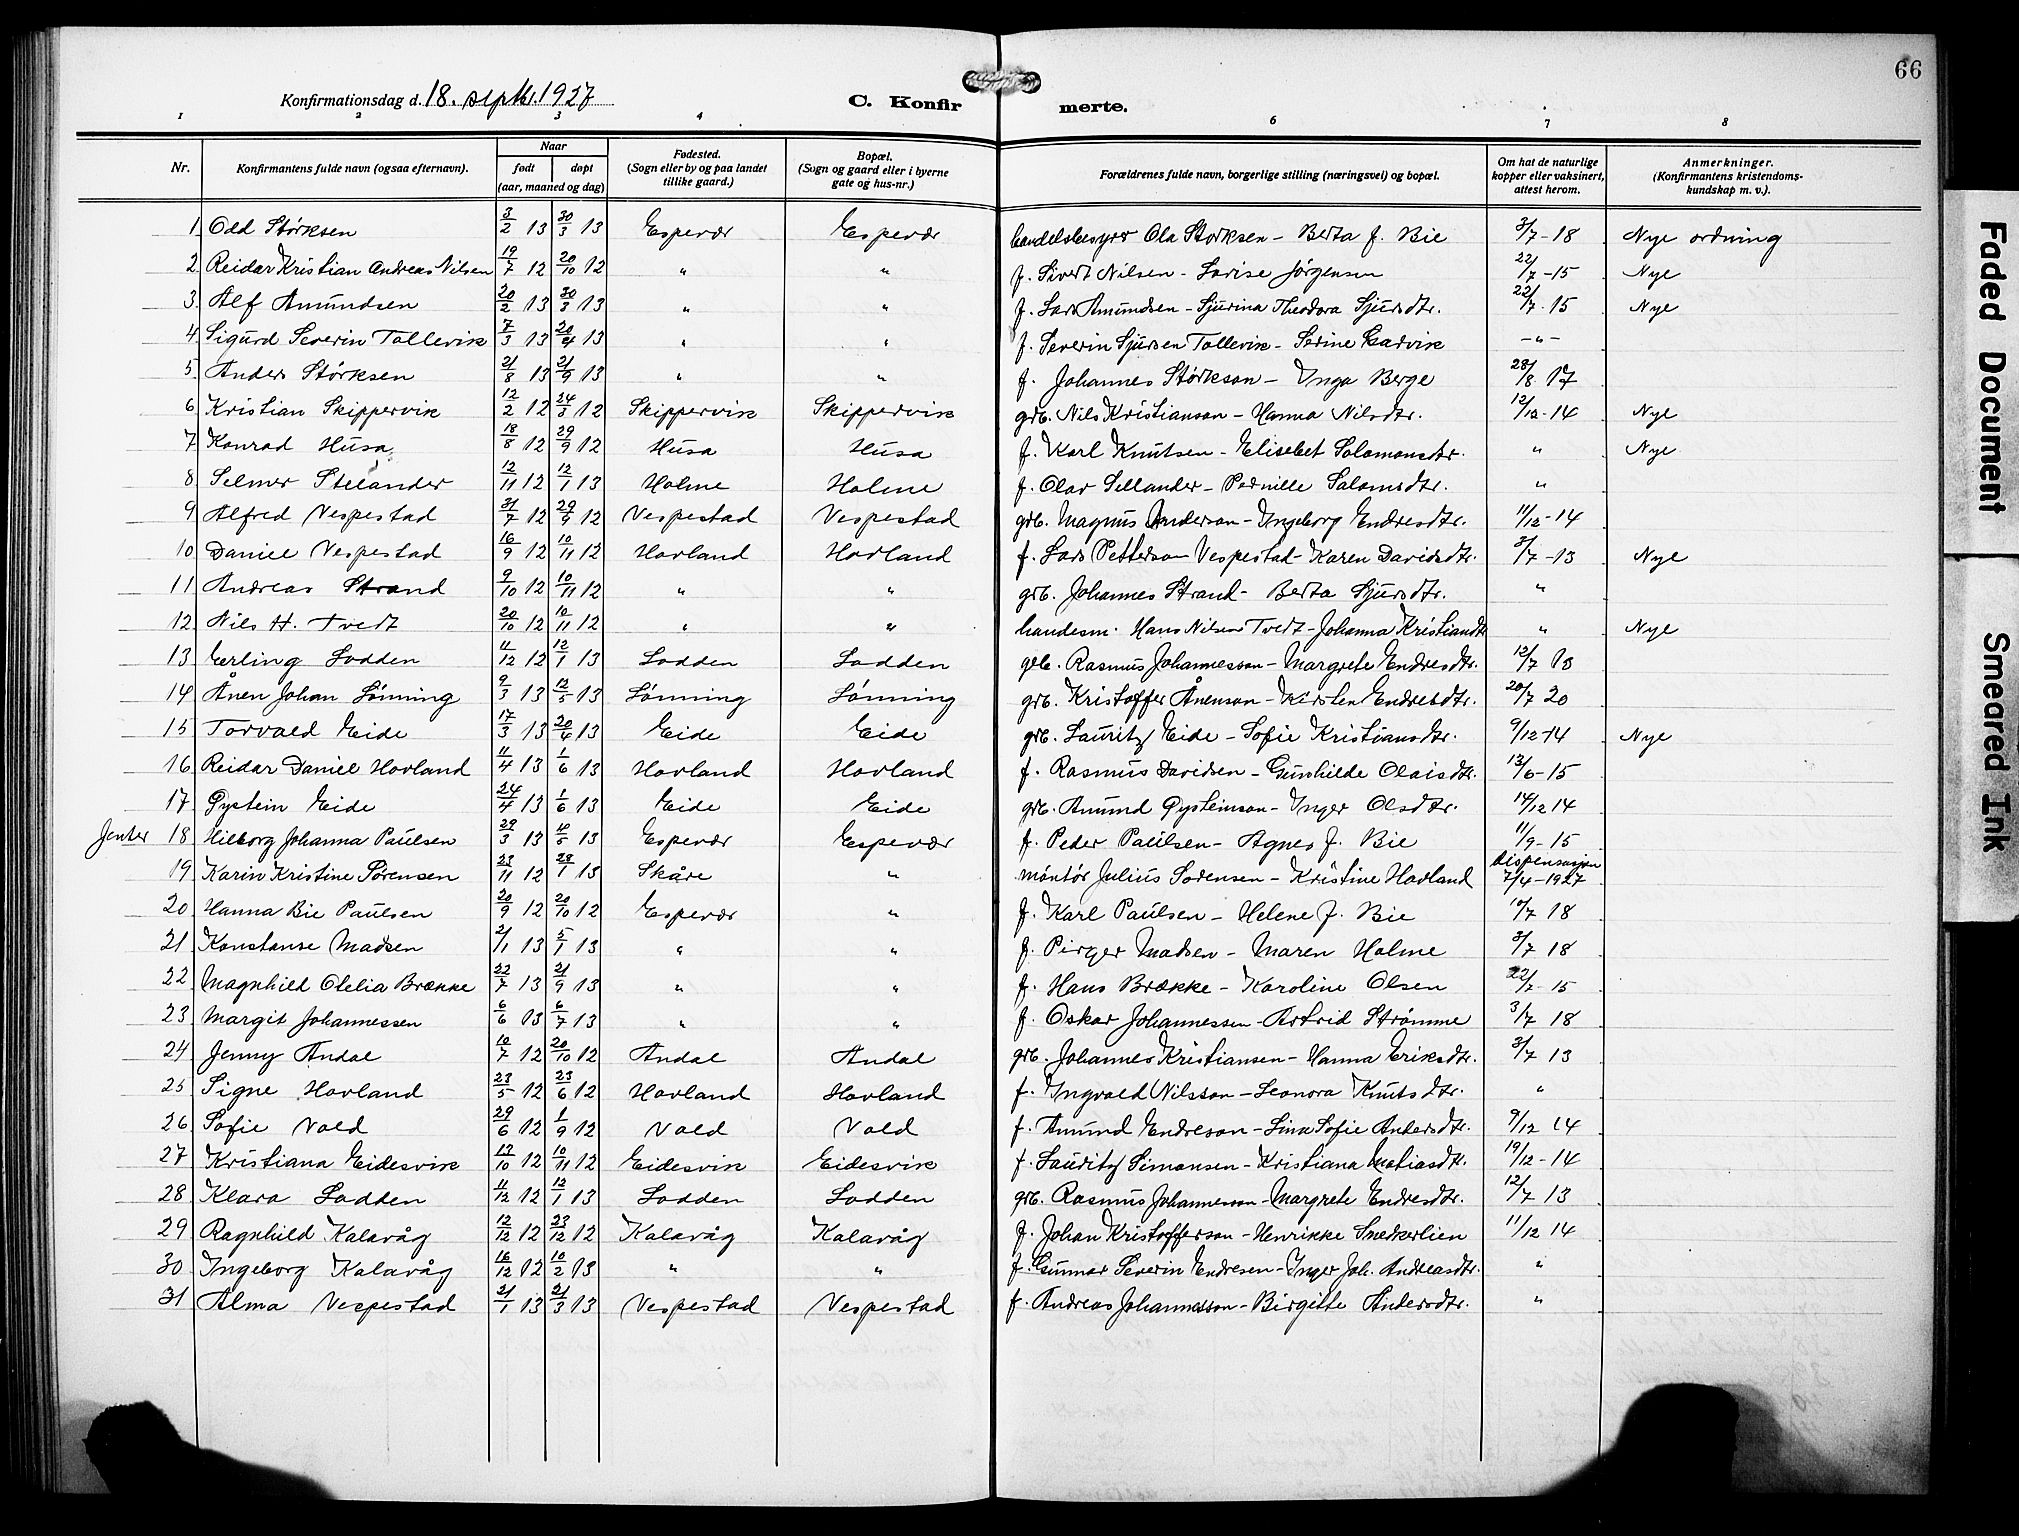 66
Konfirmationsdag d. 18. septbr. 1927
C. Konfir merte.
1 2 3 4 6 7 8
Nr. Konfirmantens fulde navn (ogsaa efternavn). Naar født døpt (aar, maaned og dag) Fødested. (Sogn eller by og paa landet tillike gaard.) Bopæl. (Sogn og gaard eller i byerne gate og hus-nr.) Forældrenes fulde navn, borgerlige stilling (næringsvei) og bopæl. Om hat de naturlige kopper eller vaksinert, attest herom. Anmerkninger. (Konfirmantens kristendoms-kundskap m. v.).
1 Odd Størksen 3/2 13 30/3 13 Espevær Espevær handelsbestyrer Ola Størksen - Berta f. Bie 3/7-18 Nye ordning
2 Reidar Kristian Andreas Nilsen 19/7 12 20/10 12 " " f. Sivert Nilsen - Lovise Jørgensen 22/7-15 Nye
3. Alf Amundsen 20/2 13 30/3 13 " " f. Lars Amundsen - Sjurina Theodora Sjursdtr. 22/7-15 Nye
4 Sigurd Severin Tollevik 7/3 13 20/4 13 " " f. Severin Sjursen Tollevik - Serine Gadvik -"-
5. Anders Størksen 21/8 13 21/9 13 " " f. Johannes Størkson - Inga Berge 28/8 17
6 Kristian Skippervik 12/2 12 24/3 12 Skippervik Skippervik grb. Nils Kristianson - Hanna Nilsdtr. 12/12-14 Nye
7 Konrad Husa 18/8 12 29/9 12 Husa Husa f. Karl Knutsen - Elisebet Salomonsdtr. " Nye
8 Selmer Stelander 12/11 12 12/1 13 Holme Holme f. Olav Sellander - Pernille Salamsdtr. "
9 Alfred Vespestad 31/7 12 29/9 12 Vespestad Vespestad grb. Magnus Anderson - Ingeborg Endresdtr. 11/12-14
10 Daniel Vespestad 16/9 12 10/11 12 Hovland Hovland f. Lars Petterson Vespestad - Karen Davidsdtr. 3/7-13 Nye
11 Andreas Strand 9/10 12 10/11 12 " " grb. Johannes Strand - Berta Sjursdtr. "
12 Nils H. Tvedt 20/10 12 10/11 12 " " handesm. Hans Nilsen Tvedt - Johanna Kristiandtr " Nye
13 Erling Lodden 11/12 12 12/1 13 Lodden Lodden grb. Rasmus Johannesson - Margrete Endresdtr. 12/7 13
14 Ånen Johan Lønning 9/3 13 12/5 13 Lønning Lønning grb. Kristoffer Ånenson - Kirsten Endresdtr. 20/7 20
15 Torvald Eide 17/3 13 20/4 13 Eide Eide grb. Lauritz Eide - Sofie Kristiansdtr. 9/12-14 Nye
16 Reidar Daniel Hovland 11/4 13 1/6 13 Hovland Hovland f. Rasmus Davidsen - Gunhilde Olaisdtr. 13/6-15
17 Øystein Eide 24/4 13 1/6 13 Eide Eide grb. Amund Øysteinson - Inger Olsdtr. 14/12 14
Jenter 18 Hilborg Johanna Paulsen 29/3 13 10/5 13 Espevær Espevær f. Peder Paulsen - Agnes f. Bie 11/9-15
19 Karin Kristine Sørensen 23/11 12 28/1 13 Skåre " montør Julius Sørensen - Kristine Hovland dispensasjon 7/4-1927
20 Hanna Bie Paulsen 20/9 12 20/10 12 Espevær " f. Karl Paulsen - Helene f. Bie 10/7 18
21 Konstanse Madsen 2/1 13 5/1 13 " " f. Pirger Madsen - Maren Holme 3/7 18
22 Magnhild Otelia Brække 22/7 13 21/9 13 " " f. Hans Brække - Karoline Olsen 22/7-15
23 Margit Johannessen 6/6 13 6/7 13 " " f. Oskar Johannessen - Astrid Strømme 3/7 18
24 Jenny Andal 10/7 12 20/10 12 Andal Andal grb. Johannes Kristiansen - Hanna Eriksdtr. 3/7 13
25 Signe Hovland 23/5 12 23/6 12 Hovland Hovland f. Ingvald Nilsson - Leonora Knutsdtr. "
26 Sofie Vold 29/6 12 1/9 12 Vold Vold f. Amund Endreson - Lina Sofie Andersdtr. 9/12 14
27 Kristiana Eidesvik 12/10 12 10/11 12 Eidesvik Eidesvik f. Lauritz Simonsen - Kristiana Matiasdtr. 19/12-14
28 Klara Lodden 11/12 12 12/1 13 Lodden Lodden grb. Rasmus Johannesson - Margrete Endresdtr. 12/7 13
29 Ragnhild Kalavåg 12/12 12 23/12 12 Kalavåg Kalavåg f. Johan Kristofferson - Henrikke Snekerlien 11/12 14
30 Ingeborg Kalavåg 16/12 12 10/2 13 " " f. Gunnar Severin Endresen - Inger Joh. Andreasdtr. "
31 Alma Vespestad 21/1 13 21/3 13 Vespestad Vespestad f. Andreas Johannesson - Birgitte Andersdtr. "
Faded Document
Smeared Ink